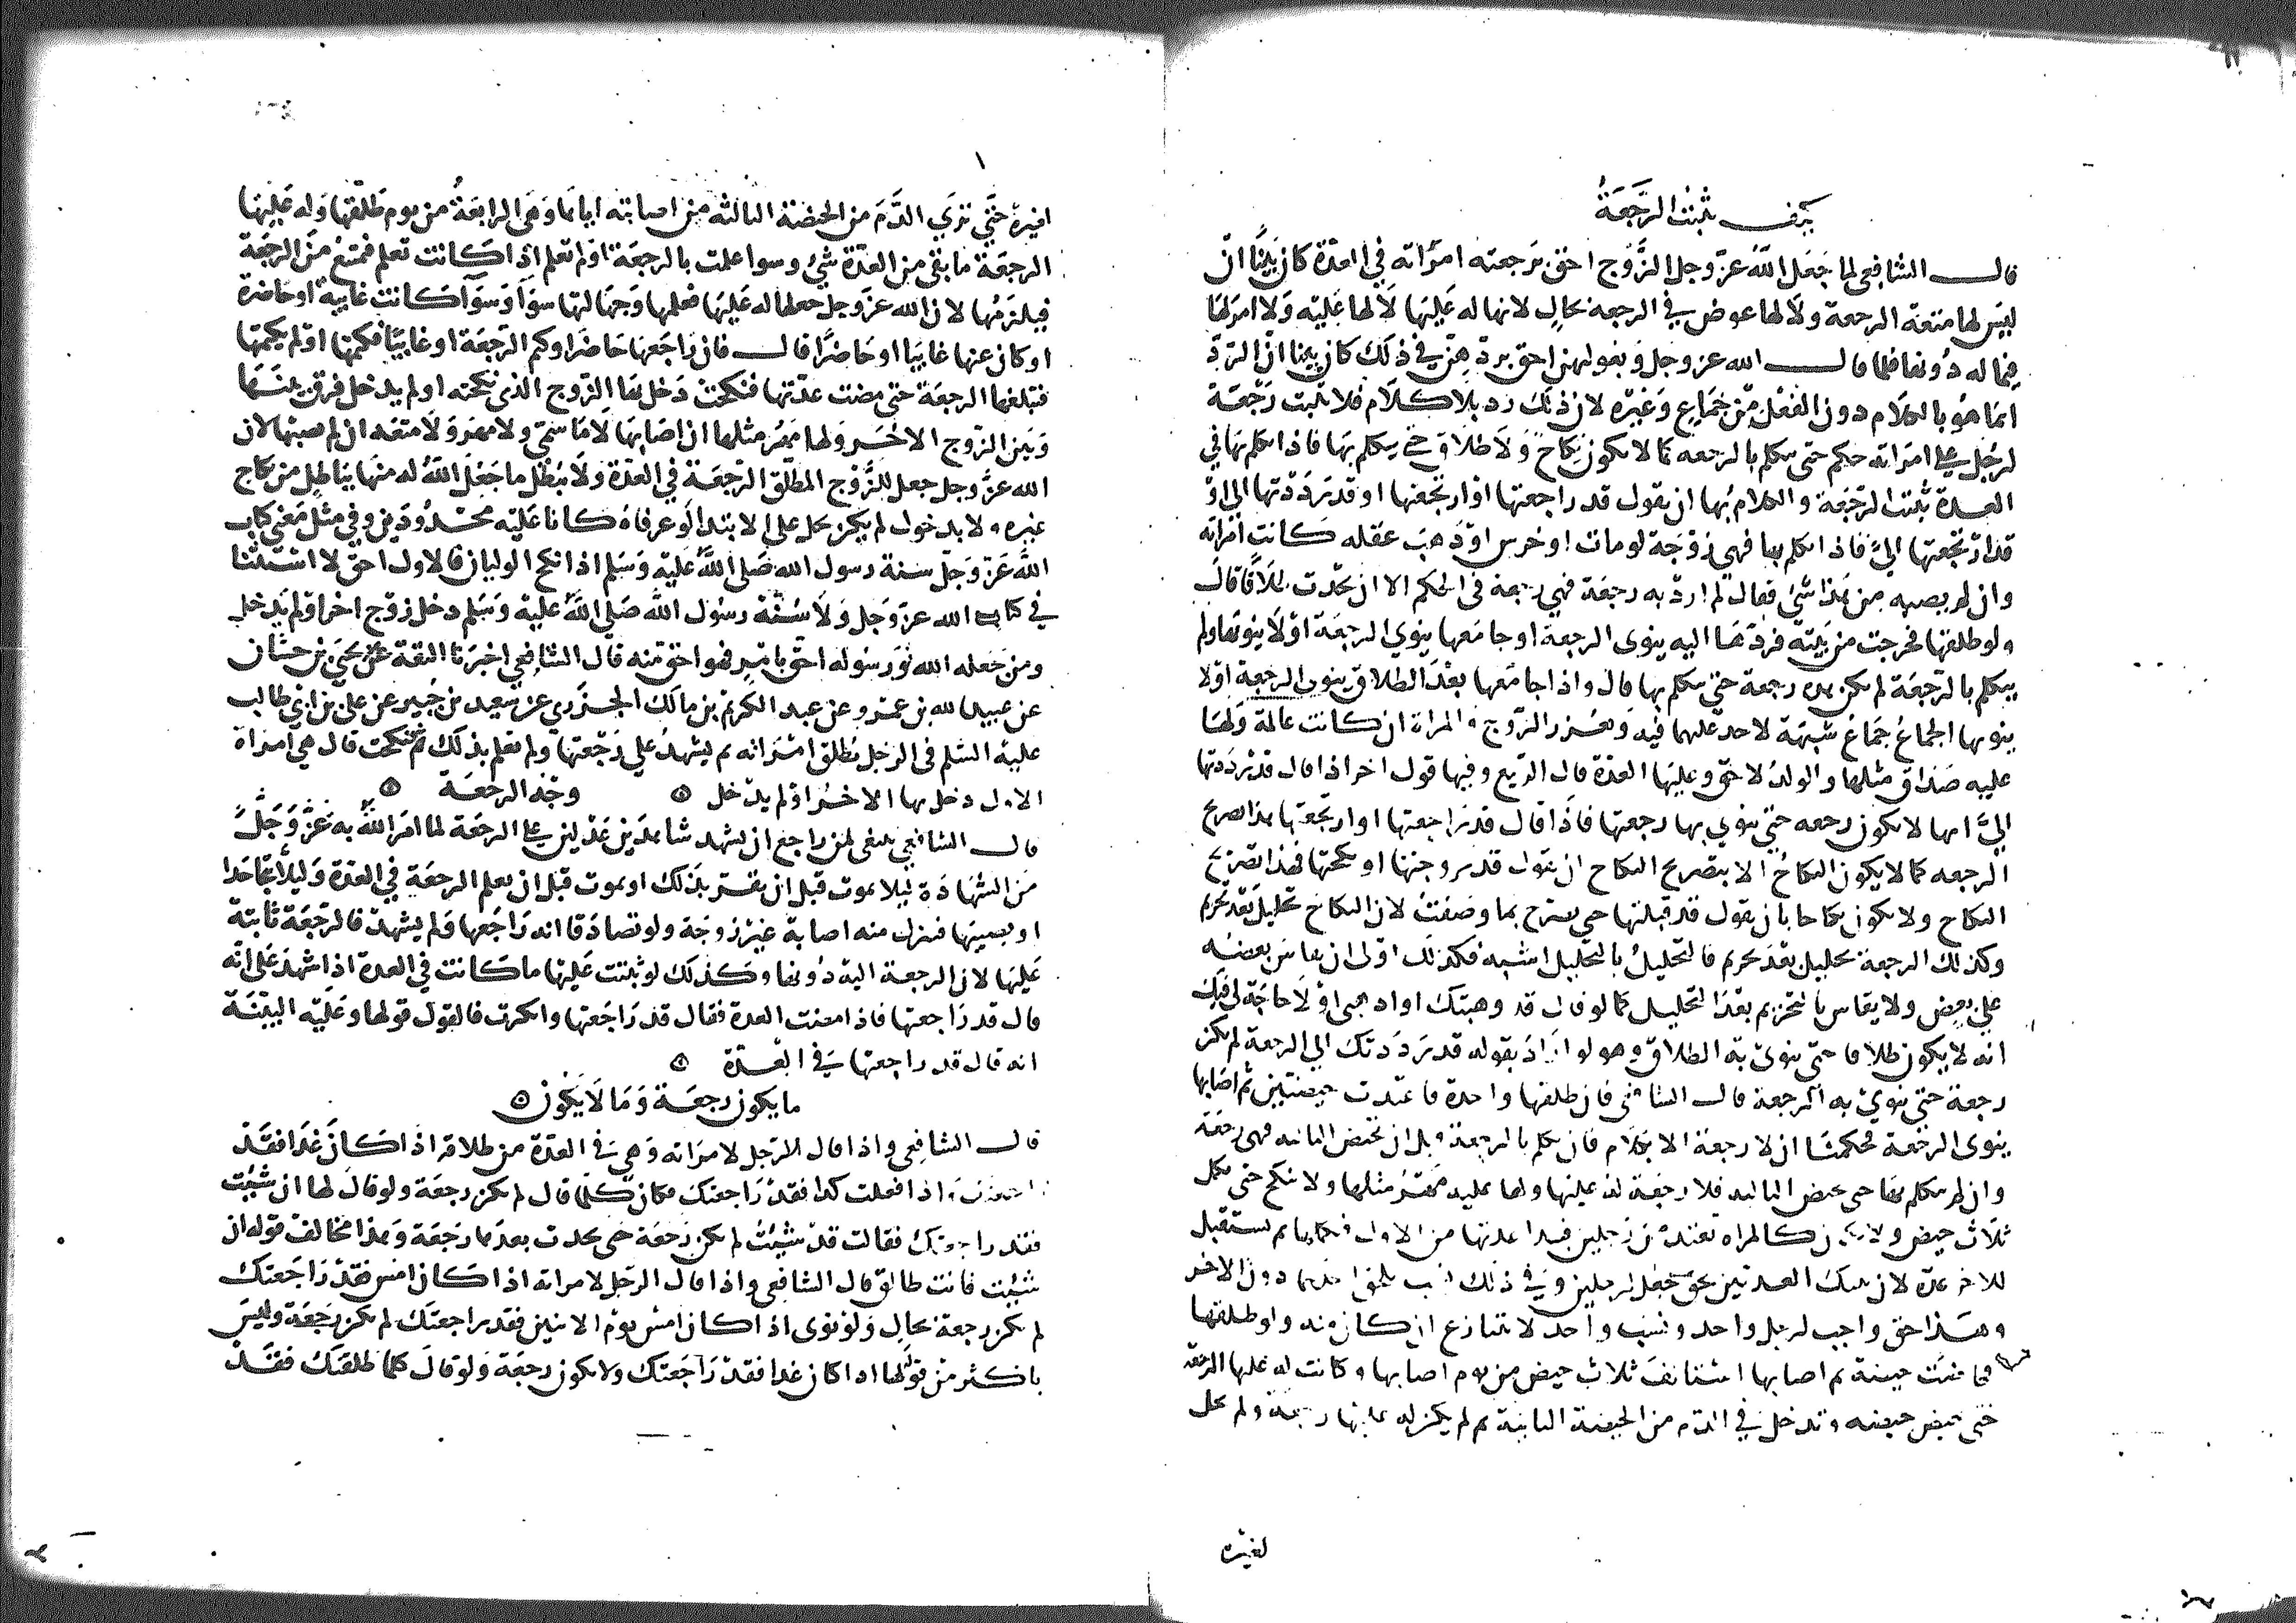 كيف تثبت الرجعة
قال الشافعي لما جعل الله عز وجل الزوج احق برجعته امراته في العدة كان بينا ان
ليس لها منعه الرجعة ولا لها عوض في الرجعة بحال لانها له عليها لا لها عليه ولا امر لها
فيما له دونها فلما قال الله عز وجل وبعولتهن احق بردهن في ذلك كان بينا ان الرد
انما هو بالكلام دون الفعل من جماع وغيره لان ذلك رد بلا كلام فلا تثبت رجعة
لرجل على امراته حتى يتكلم بالرجعة كما لا يكون نكاح ولا طلاق حتى يتكلم بهما فاذا تكلم بها في
العدة ثبتت الرجعة والكلام بها ان يقول قد راجعتها او ارتجعتها او قد رددتها الي او
قد ارتجعتها الي فاذا تكلم بها فهي زوجة لو مات او خرس او ذهب عقله كانت امراته
وان لم يصبه من هذا شي فقال لم ارد به رجعة فهي رجعة في الحكم الا ان يحدث طلاقا قال
ولو طلقها فخرجت من بيته فردها اليه ينوي الرجعة او جامعها ينوي الرجعة او لا ينويها ولم
يتكلم بالرجعة لم تكن هذه رجعة حتى يتكلم بها قال واذا جامعها بعد الطلاق ينوي الرجعة او لا
ينويها الجماع جماع شبهة لا حد عليهما فيه ويعزر الزوج والمراة ان كانت عالمة ولها
عليه صداق مثلها والولد لاحق وعليها العدة قال الربيع وفيها قول اخر اذا قال قد رددتها
الي انها لا تكون رجعه حتى ينوي بها رجعتها فاذا قال قد راجعتها او ارتجعتها هذا تصريح
الرجعه كما لا يكون النكاح الا بتصريح النكاح ان يقول قد تزوجتها او نكحتها فهذا تصريح
النكاح ولا يكون نكاحا بان يقول قد قبلتها حتى يصرح بما وصفت لان النكاح تحليل بعد تحريم
وكذلك الرجعة تحليل بعد تحريم فالتحليل بالتحليل اشبه فكذلك اولى ان يقاس بعضه
على بعض ولا يقاس بالتحريم بعد التحليل كما لو قال قد وهبتك او اذهبي او لا حاجة لي فيك
انه لا يكون طلاقا حتى ينوي به الطلاق وهو لو اراد بقوله قد رددتك الي الرجعة لم تكن
رجعة حتى ينوي به الرجعة قال الشافعي فان طلقها واحدة فاعتدت حيضتين ثم اصابها
ينوي الرجعة فحكمنا ان لا رجعة الا بكلام فان تكلم بالرجعة قبل ان تحيض الثالثه فهي رجعة
وان لم يتكلم بها حتى تحيض الثالثه فلا رجعة له عليها ولها عليه مهر مثلها ولا تنكح حتى تكمل
ثلاث حيض ولا تكون كالمراه تعتد من رجلين فتبدا عدتها من الاول فتكملها ثم تستقبل
للاخر عدة لان تينك العدتين بحق جعل لرجلين وفي ذلك نسب يلحق احدهما دون الاخر
وهذا حق واجب لرجل واحد ونسب واحد لا يتنازع ان كان منه ولو طلقها
فحاضت حيضة ثم اصابها استانفت ثلاث حيض من يوم اصابها وكانت له عليها الرجعة
حتى تحيض حيضه وتدخل في الدم من الحيضة الثانية ثم لم يكن له عليها رجعة ولم تحل
لغيره
لغيره حتى ترى الدم من الحيضة الثالثه من اصابته اياها وهي الرابعة من يوم طلقها وله عليها
الرجعة ما بقي من العدة شي وسوا علمت بالرجعة او لم تعلم اذا كانت تعلم فتمتنع من الرجعة
فيلزمها لان الله عز وجل جعلها له عليها فعلمها وجهالتها سوا وسوا كانت غايبة او حاضرة
او كان عنها غايبا او حاضرا قال فان راجعها حاضرا وكتم الرجعة او غايبا فكتمها او لم يكتمها
فتبلغها الرجعة حتى مضت عدتها فنكحت دخل بها الزوج الذي نكحته او لم يدخل فرق بينها
وبين الزوج الاخر ولها مهر مثلها ان اصابها لا ما سمى ولا مهر ولا متعه ان لم يصبها لان
الله عز وجل جعل للزوج المطلق الرجعة في العدة ولا يبطل ما جعل الله له منها بباطل من نكاح
غيره ولا بدخول لم يكن يحل على الابتدا لو عرفاه كانا عليه محدودين وفي مثل معنى كتاب
الله عز وجل سنة رسول الله صلى الله عليه وسلم اذا انكح الوليان فالاول احق لا استثنا
في كتاب الله عز وجل ولا سنة رسول الله صلى الله عليه وسلم دخل زوج اخر او لم يدخل
ومن جعله الله ورسوله احق بامر فهو احق منه قال الشافعي اخبرنا الثقة عن يحيى بن حسان
عن عبيد الله بن عمرو عن عبد الكريم بن مالك الجزري عن سعيد بن جبير عن علي بن ابي طالب
عليه السلم في الرجل يطلق امراته ثم يشهد على رجعتها ولم تعلم بذلك فنكحت قال هي امراة
الاول دخل بها الاخر او لم يدخل ۞ وجه الرجعة ۞
قال الشافعي ينبغي لمن راجع ان يشهد شاهدين عدلين على الرجعة لما امر الله به عز وجل
من الشهادة ليلا يموت قبل ان يقر بذلك او يموت قبل ان تعلم الرجعة في العدة وليلا يتجاحدا
او يصيبها فتنزل منه اصابة غير زوجة ولو تصادقا انه راجعها ولم يشهد فالرجعة ثابتة
عليها لان الرجعة اليه دونها وكذلك لو ثبتت عليها ما كانت في العدة اذا شهد على انه
قال قد راجعتها فاذا مضت العدة فقال قد راجعتها وانكرت فالقول قولها وعليه البينة
انه قال قد راجعتها في العدة ۞
ما يكون رجعة وما لا يكون ۞
قال الشافعي واذا قال الرجل لامراته وهي في العدة من طلاقه اذا كان غدا فقد
راجعتك واذا فعلت كذا فقد راجعتك فكان كلما قال لم يكن رجعة ولو قال لها ان شيت
فقد راجعتك فقالت قد شيت لم تكن رجعة حتى يحدث بعدها رجعة وهذا مخالف قوله ان
شيت فانت طالق قال الشافعي واذا قال الرجل لامراته اذا كان امس فقد راجعتك
لم تكن رجعة بحال ولو نوى اذا كان امس يوم الاثنين فقد راجعتك لم تكن رجعة وليس
باكثر من قوله لها اذا كان غدا فقد راجعتك ولا تكون رجعة ولو قال كلما طلقتك فقد